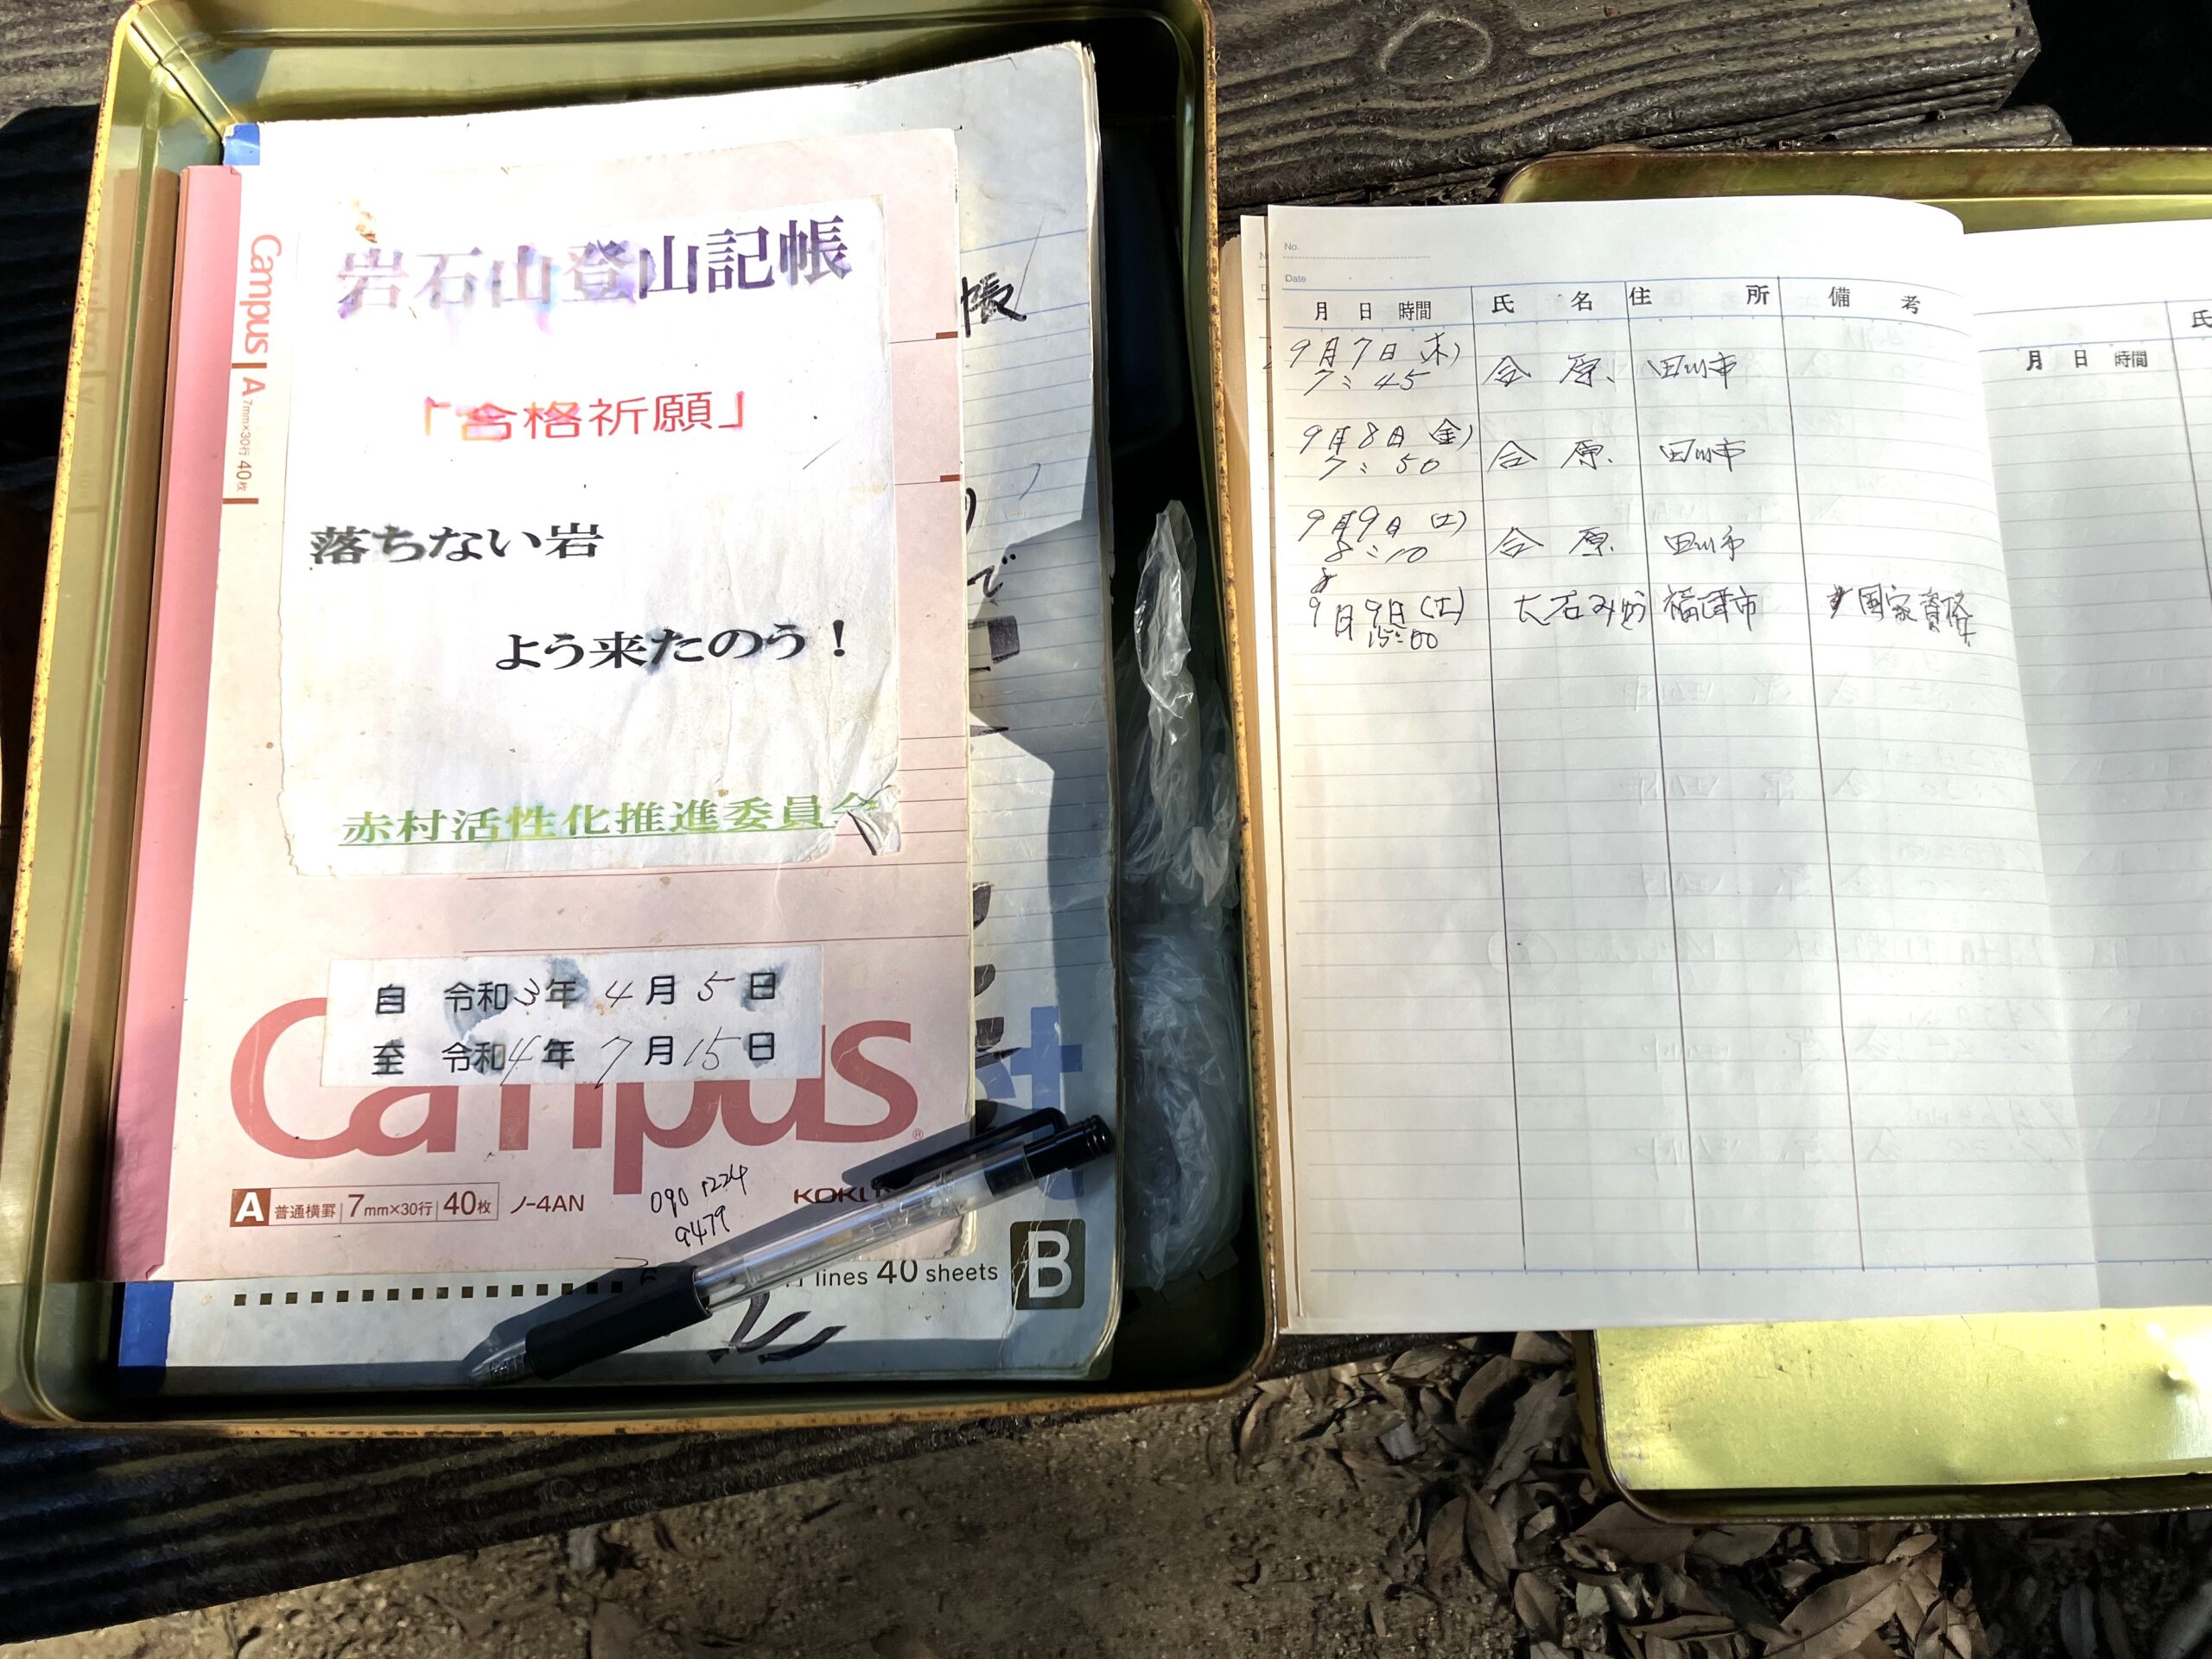 岩石山登山記帳
「合格祈願」
落ちない岩
よう来たのう！
赤村活性化推進委員会
自 令和3年 4月 5日
至 令和4年 7月15日
Campus
A 普通横罫 7mm×30行 40枚 ノ-4AN
090 1224
9479
lines 40 sheets
B
Campus A 7mm×30行 40枚
帳
で
No.
Date
月 日 時間 氏 名 住 所 備 考
9月7日(木) 合 原 田川市
7:45
9月8日(金) 合 原 田川市
7:50
9月9日(土) 合 原 田川市
8:10
9月9日(土) 大石みゆ 福津市 国家資格
15:00
月 日 時間 氏